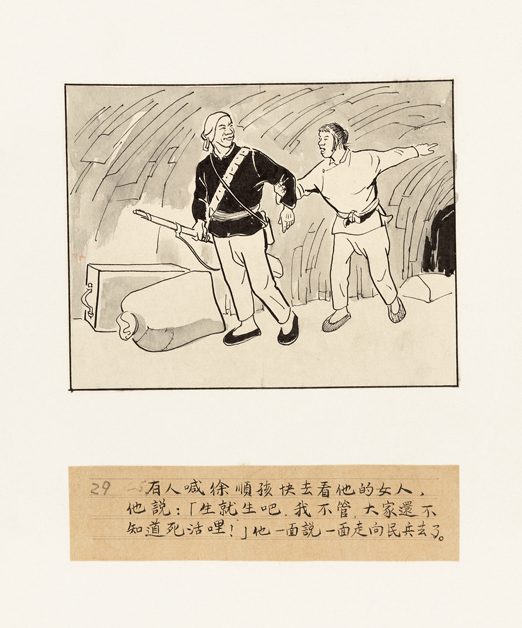 29 有人喊徐順孩快去看他的女人，
他説：「生就生吧，我不管，大家還不
知道死活哩！」他一面説一面走向民兵去了。